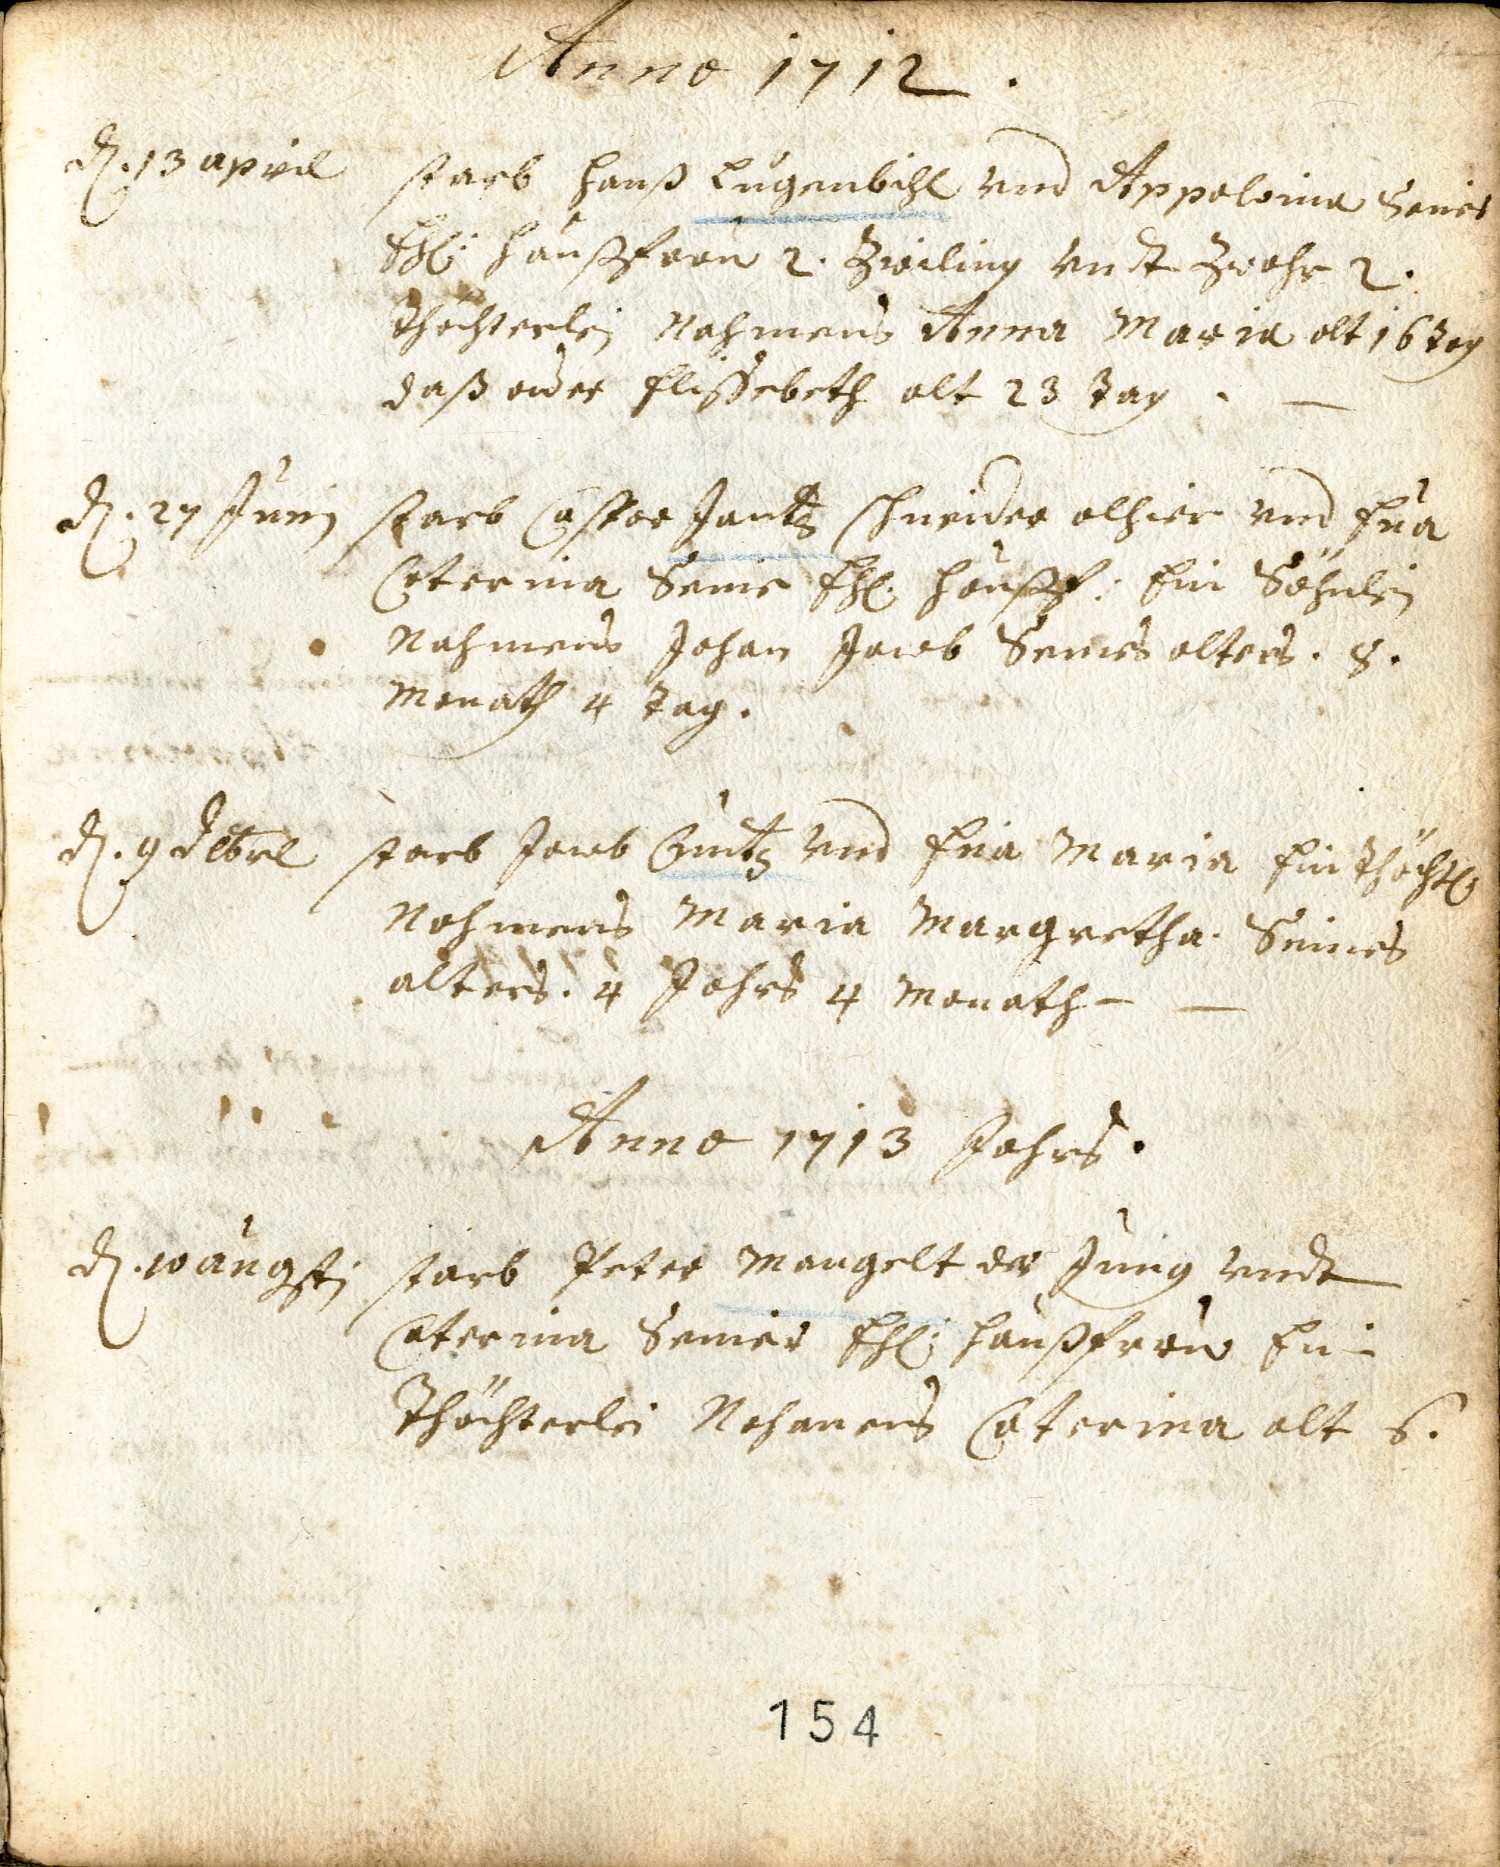 Anno 1712.
d. 13 april starb Hanß Lugenbihl und Appolonia Seine
Ehl: haußfrau 2. Zwiling undt Zwahr 2.
Thöchterlej Nahmens Anna Maria alt 16 tag
daß ander Elissebeth alt 23 tag. —
d. 27 Junj starb Casper Jantz Schneider alhier und Eva
Caterina Seine Ehl. haußf: Ein Söhnlej
Nahmens Johan Jacob Seines alters. 8.
Monath 4 tag.
d. 9 starb Jacob Cuntz und Eva Maria Ein Thöchtl:
Nahmens Maria Margretha. Seines
alters. 4 Jahrs 4 Monath — —
Anno 1713 Jahrs.
d. 10 augstj starb Peter Mangelt der Jung undt
Caterina Seiner Ehl: haußfrau Ein
Thöchterlei Nahmens Caterina alt 6.
154